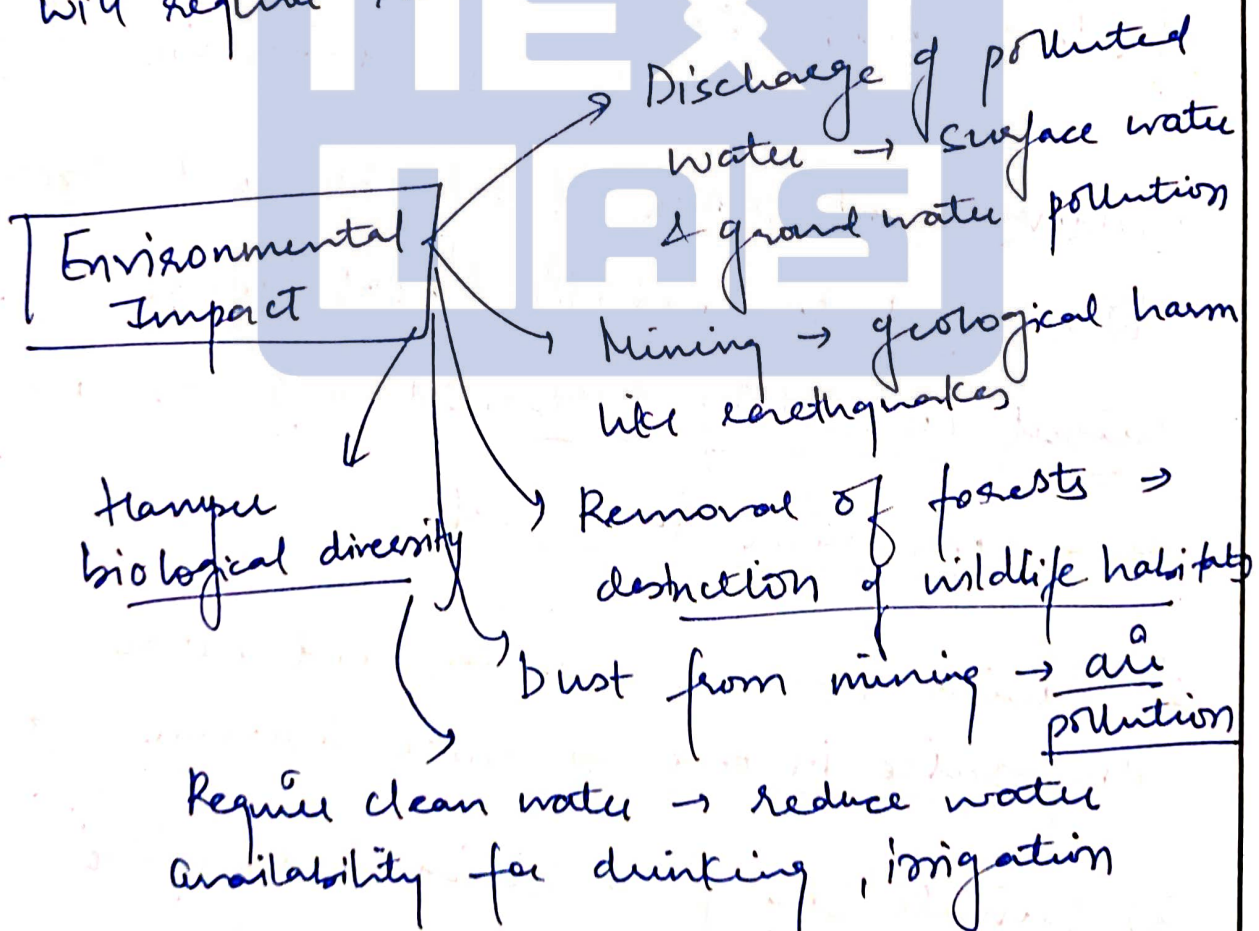 will require
NEXT
IAS
Discharge of polluted
water → surface water
& ground water pollution
Environmental
Impact
Mining → geological harm
like earthquakes
Removal of forests →
destruction of wildlife habitats
Hamper
biological diversity
Dust from mining → air
pollution
Require clean water → reduce water
availability for drinking, irrigation